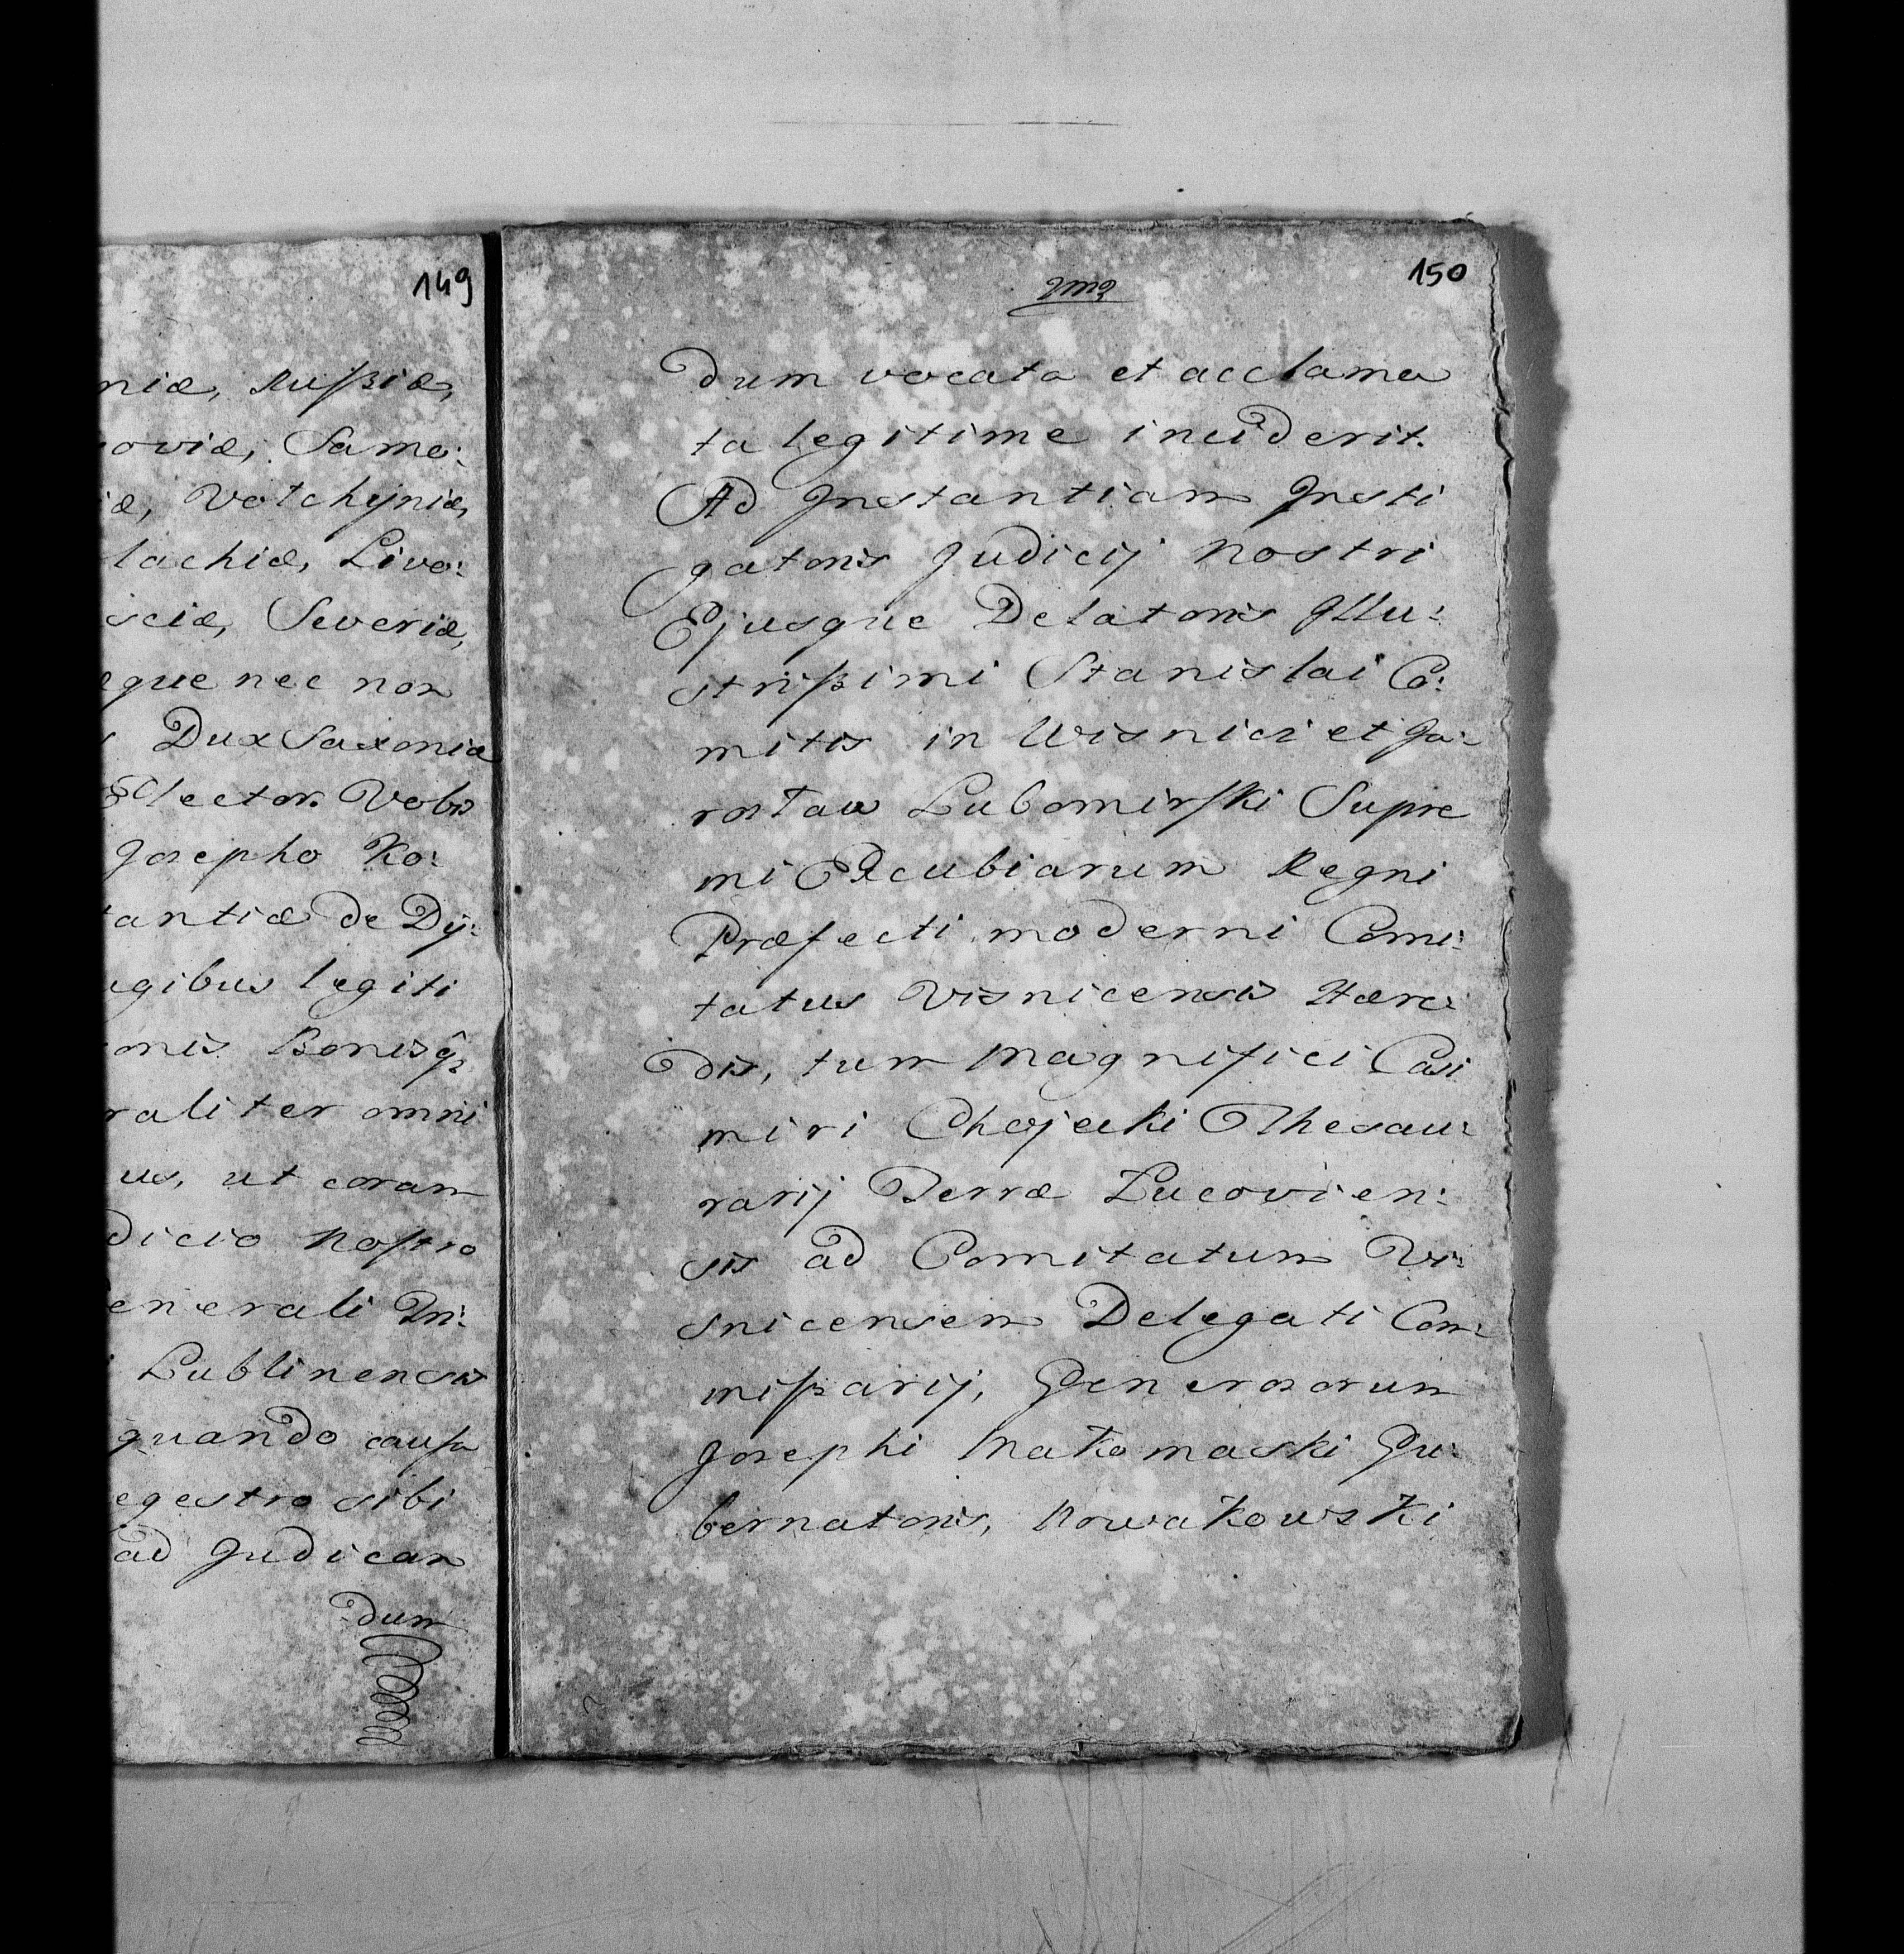 149
niæ, Rußiæ,
oviæ, Samo:
æ, Volchyniæ,
lachiæ, Livo:
sciæ, Severiæ,
que nec non
Dux Saxoniæ
Elector. Vobis
Josepho Ko:
antiæ de Dy:
gibus legiti
onis Bonisq̃
raliter omni
us, ut coram
dicio Nostro
enerali Tri:
Lublinensis
quando causa
egestro sibi
ad Judican
dum
150
2mq
dum vocata et acclama
ta legitime inciderit.
Ad Instantiam Insti
gatoris Judicij Nostri
Ejusque Delatoris Illu:
strißimi Stanislai Co:
mitis in Wisnicz et Ja:
rosław Lubomirski Supre
mi Excubiarum Regni
Præfecti moderni Comi:
tatus Visnicensis Hære:
dis, tum Magnifici Casi
miri Chojecki Thesau:
rarij Terræ Lucovien:
sis ad Comitatum Vi:
snicensem Delegati Com:
mißarij, Generosorum
Josephi Makomaski Gu:
bernatoris, Nowakowski